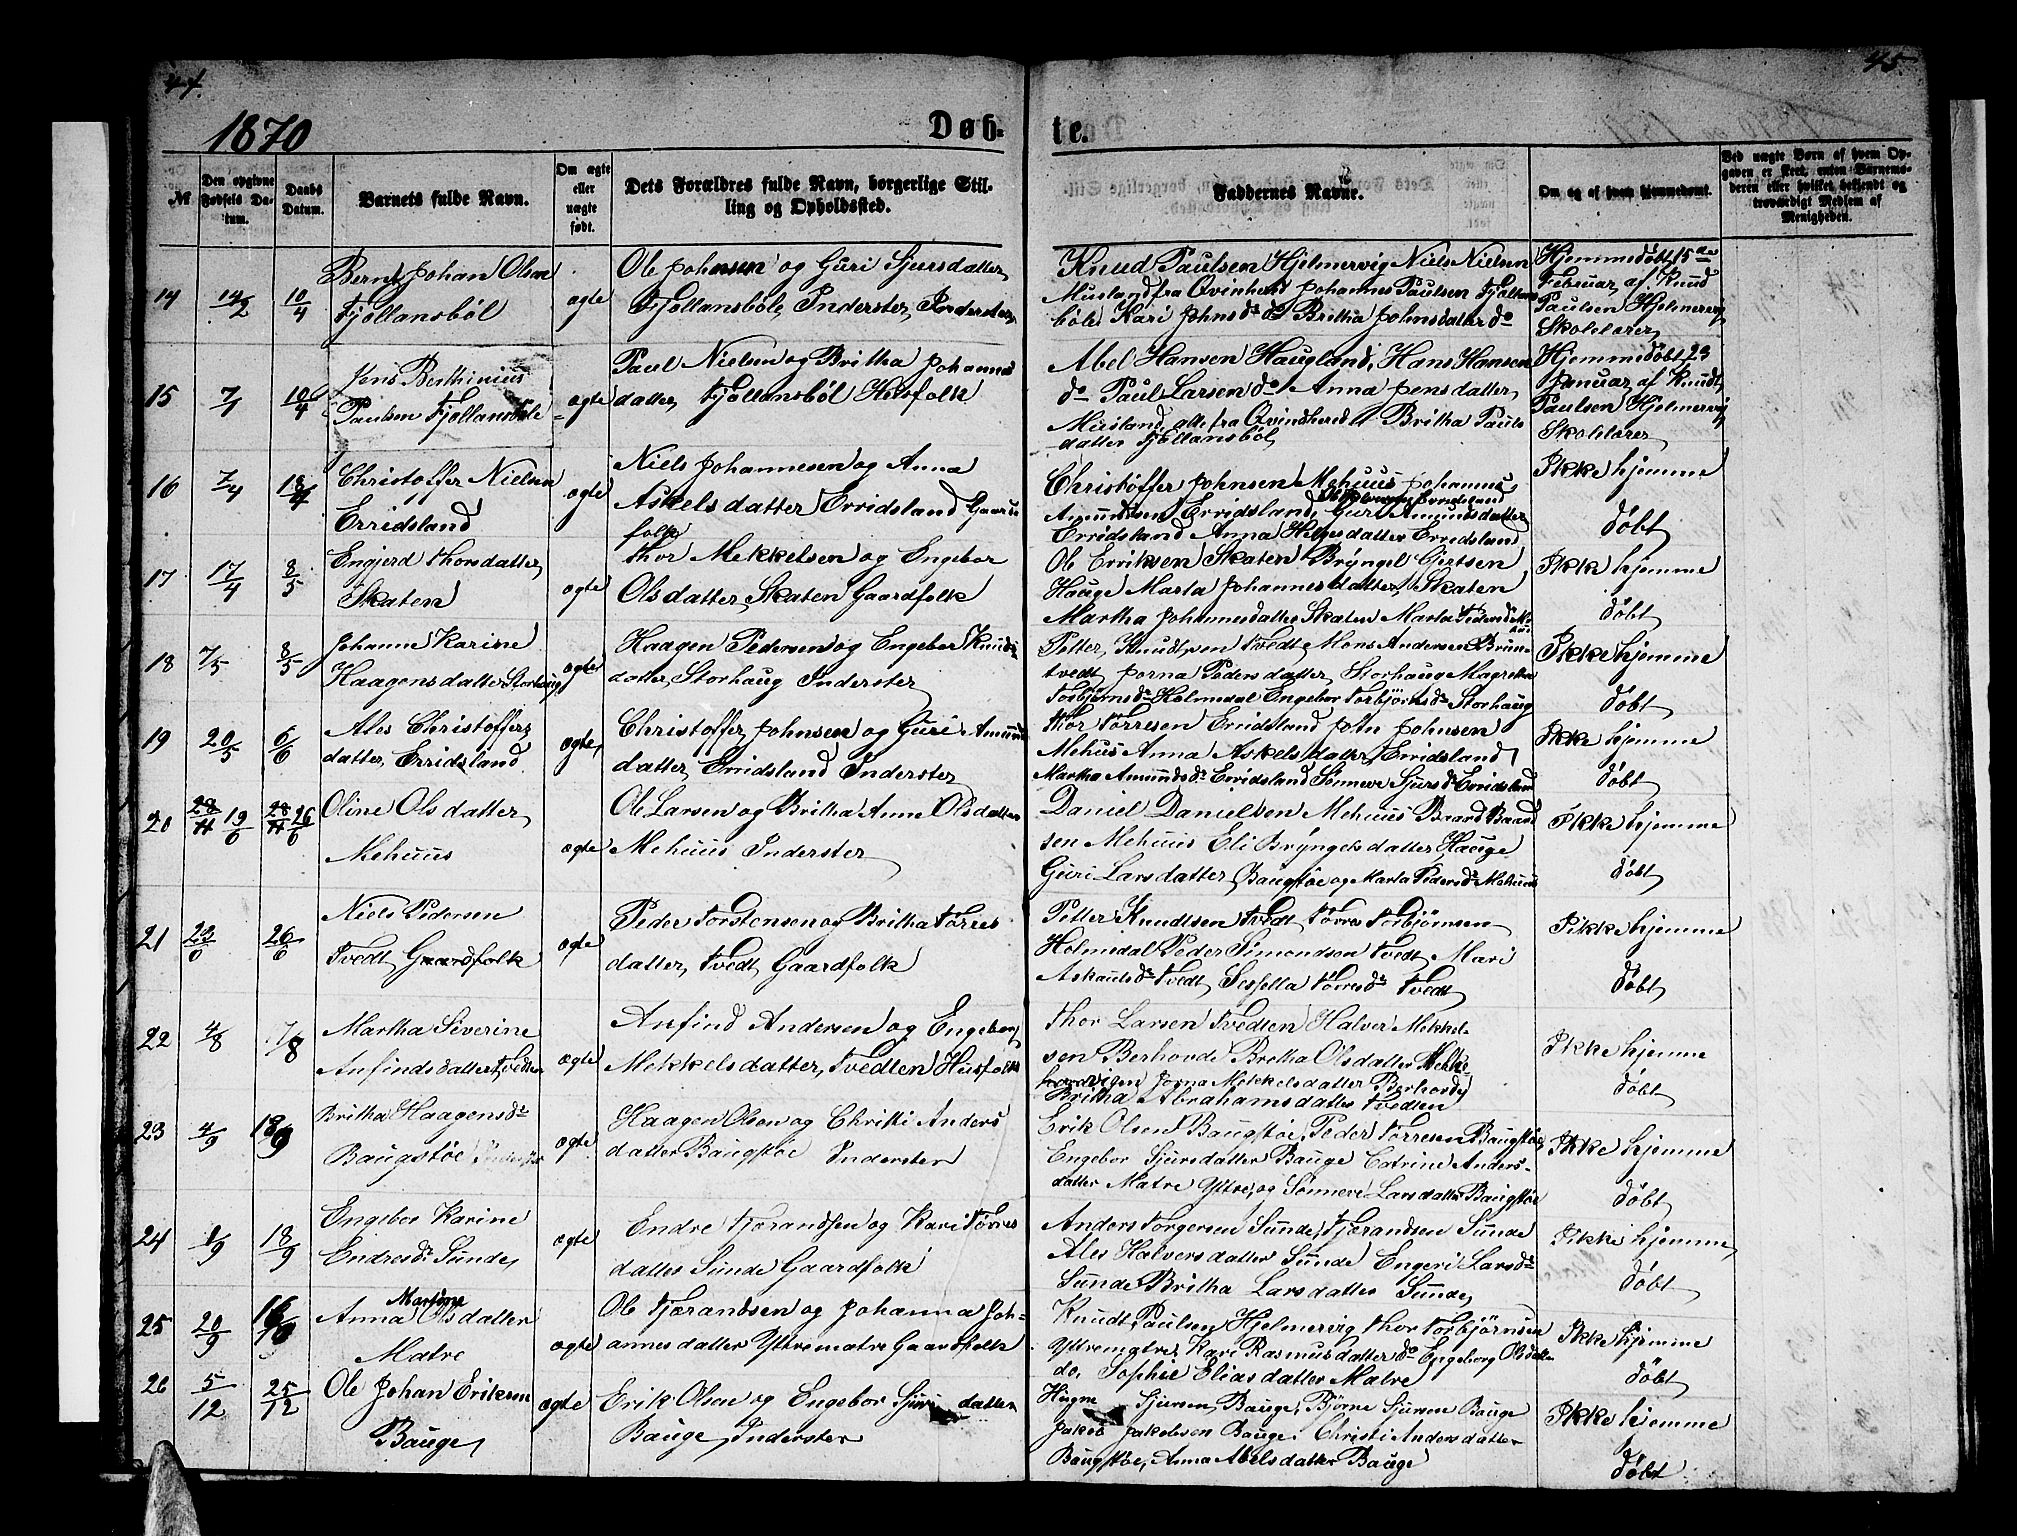 44.
45
1870
Døb-
te.
№
Den opgivne Fødsels Datum.
Daabs Datum.
Barnets fulde Navn.
Om ægte eller uægte født.
Dets Forældres fulde Navn, borgerlige Stilling og Opholdssted.
Faddernes Navne.
Om og af hvem hjemmedøbt.
Ved uægte Børn af hvem Opgaven er skeet, enten Barnemoderen eller hvilket bekjendt og troværdigt Medlem af Menigheden.
14
14/2
10/4
Bernt Johan Olsen
Fjöllansböl
ægte
Ole Johnsen og Guri Sjursdatter
Fjöllansböle, Inderster, Inderster,
Knud Paulsen Hjelmervig Niels Nielsen
Musland fra Qvinherd, Johannes Paulsen Fjöllans
böle, Kari Johns dr do Britha Johnsdatter do
Hjemmedøbt 15de
Februar af Knud
Paulsen Hjelmervig
Skolelærer
15
7/1
10/4
Jens Berthinius
Paulsen Fjöllansböle
ægte
Paul Nielsen og Britha Johannes
datter, Fjöllansböl Husfolk
Abel Hansen Haugland, Hans Hansen
do Paul Larsen do Anna Jensdatter,
Musland, alle fra Qvindherred Britha Pauls
datter Fjöllansböl,
Hjemmedøbt 23
Januar af Knudt
Paulsen Hjelmervig
Skolelærer
16
7/4
18/4
Christoffer Nielsen
Erridsland
ægte
Niels Johannesen og Anna
Askelsdatter Erridsland Gaard
folk
Christöffer Johnsen Mehuus Johannes
Amundsen Erridsland, Guri Amundsdatter
Erridsland Anna Helgesdatter Erridsland
Ikke hjemme
døbt
17
17/4
8/5
Engjerd Thorsdatter,
Skaten
ægte
Thor Mekkelsen og Engebor
Olsdatter, Skaten Gaardfolk
Ole Eriksen Skaten Bryngel Gjertsen
Hauge Marta Johannesdatter, Skaten
Martha Johannesdatter Skaten Marta Peders dr
Ikke hjemme
døbt
18
7/5
8/5
Johanne Karine
Haagensdatter Storhaug
ægte
Haagen Pedersen og Engebor Knuds
datter, Storhaug Inderster
Petter Knudtsen Tvedt, Mons Andersen Brun
tvedt Jorna Pedersdatter, Storhaug Magretha
Torbjörns dr Holmedal Engebor Torbjörns dr Storhaug
Ikke hjemme
døbt
19
20/5
6/6
Ales Christoffers
datter, Erridsland
ægte,
Christoffer Johnsen og Guri Amunds
datter, Erridsland Inderster
Thor Torresen Erridsland John Johnsen
Mehus Anna Askelsdatter Erridsland
Martha Amundsdr Erridsland Sönneve Sjurs dr Erridsland
Ikke hjemme
døbt
20
19/6
26/6
Oline Olsdatter,
Mehuus
ægte
Ole Larsen og Britha Anne Olsdatter
Mehuus Inderster,
Daniel Danielsen Mehuus Baard Baard
sen Mehuus Eli Bryngelsdatter, Hauge
Guri Larsdatter, Baugstøe og Marta Peders dr Mehuus
Ikke hjemme
døbt
21
23/6
26/6
Niels Pedersen
Tvedt Gaardfolk
ægte
Peder Torstensen og Britha Törres
datter, Tvedt, Gaardfolk
Petter Knudtsen Tvedt Törres Torbjörnsen
Holmedal Peder Simondsen Tvedt Mari
Askauls dr Tvedt, Sessella Törres dr Tvedt
Ikke hjemme
døbt
22
4/8
7/8
Martha Severine
Anfindsdatter Tvedten
ægte
Anfind Andersen og Engebor,
Mekkelsdatter, Tvedten Husfolk
Thor Larsen Tvedten Halver Mekkel
sen Berhovde Bretha Olsdatter
Jorna Mekkelsdatter Berhovde
Britha Abrahamsdatter Tvedten
Ikke hjemme
døbt
23
4/9
18/9
Britha Haagens dr
Baugstöe
ægte
Haagen Olson og Christi Anders
datter Baugstöe Inderster
Erik Olsen Baugstöe, Peder Torresen Baugstöe
Engebor Sjursdatter Bauge Catrine Anders-
datter Matre Yttre, og Sönneve Larsdatter Baugstöe
Ikke hjemme
døbt
24
1/9
18/9
Engebor Karine
Endres dr Sunde,
ægte
Endre Fjorandsen og Kari Törres
datter Sunde Gaardfolk
Anders Torgersen Sunde, Fjorandsen Sunde
Ales Halversdatter Sunde Engeri Lars dr
Sunde, Britha Larsdatter Sunde,
Ikke hjemme,
døbt
25
20/9
16/10
Martine
Anna Olsdatter
Matre
ægte
Ole Fjorandsen og Johanna Joh-
annesdatter Yttrematre Gaardfolk
Knudt, Paulsen Hjelmervig Thor Torbjörnsen
Yttrematre, Kari Rasmusdatter do Engeborg Olsdatter
do, Sophie Eliasdatter Matre
Ikke hjemme
døbt
26
5/12
25/12
Ole Johan Eriksen
Bauge,
ægte
Erik Olson og Engebor Sjurs datter
Bauge, Inderster
Sjursen, Bauge, Börne Sjursen Bauge
Jakob Jakobsen Bauge. Christi Andersdatter
Baugstöe, Anna Abelsdatter Bauge
Ikke hjemme
døbt